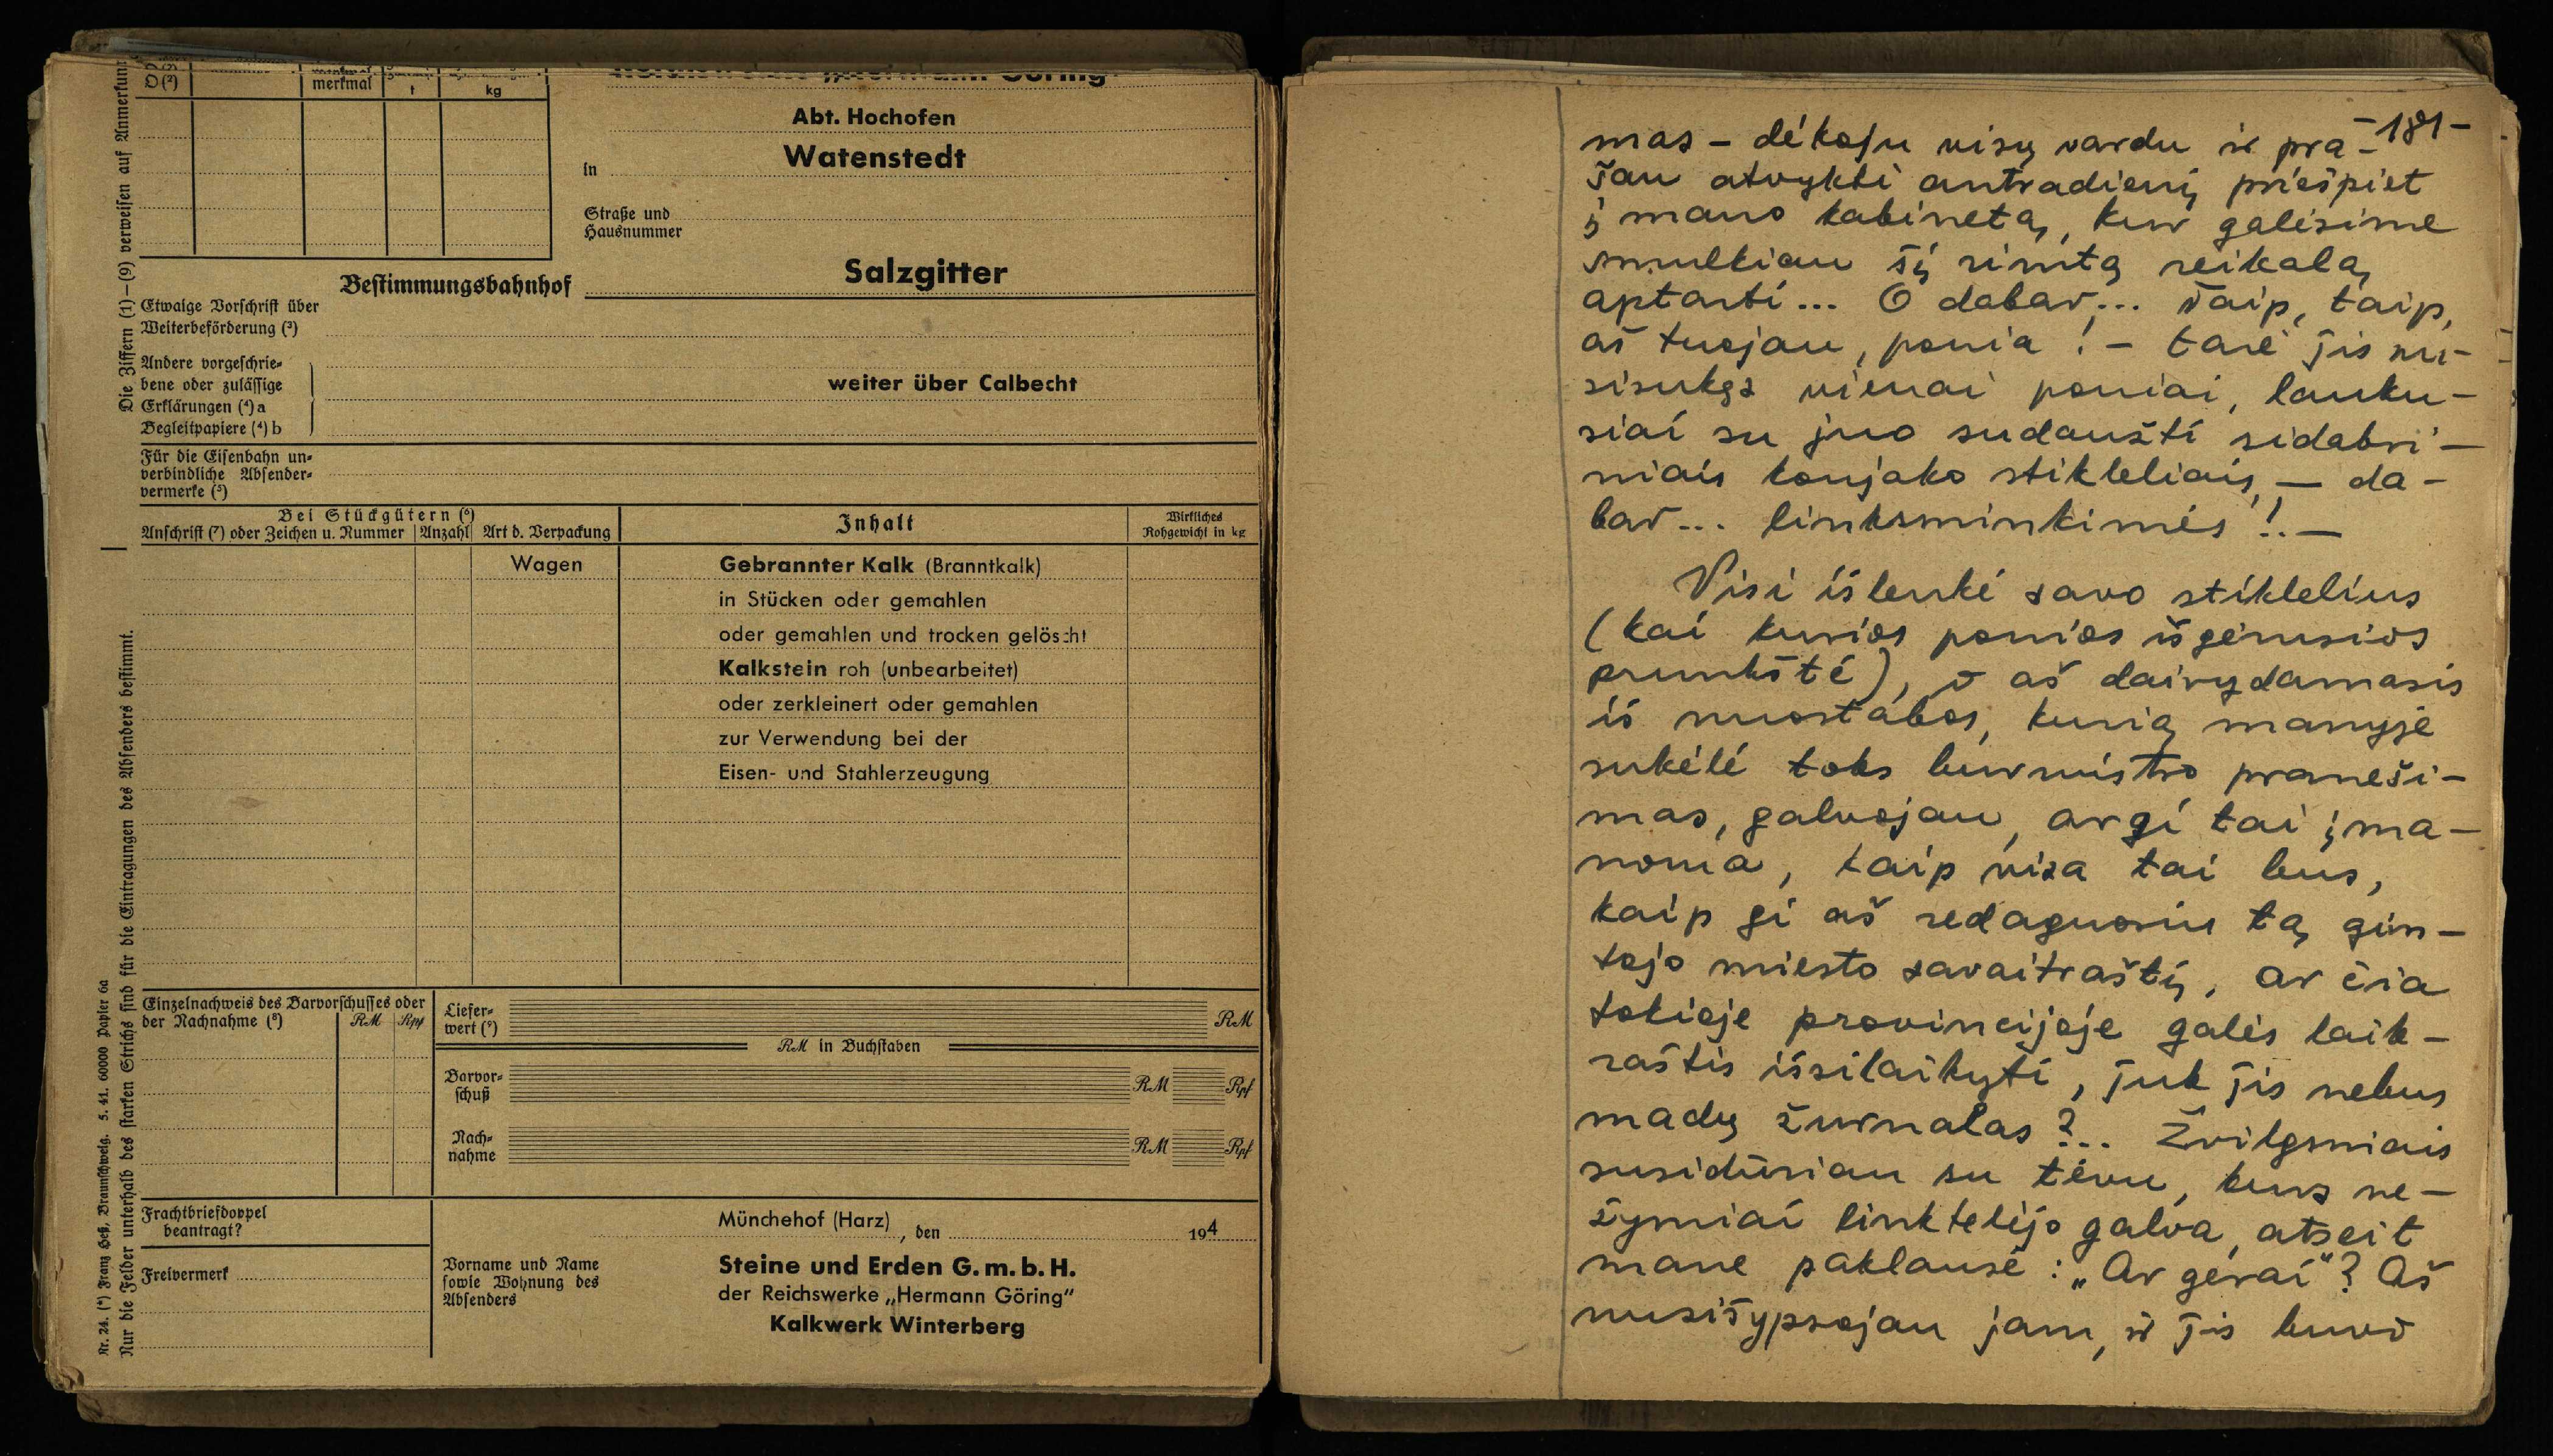 D (²)
merkmal
t
kg
Abt. Hochofen
in
Watenstedt
Straße und
Hausnummer
Bestimmungsbahnhof
Salzgitter
Etwaige Vorschrift über
Weiterbeförderung (³)
Andere vorgeschrie-
bene oder zulässige
Erklärungen (⁴) a
Begleitpapiere (⁴) b
weiter über Calbecht
Für die Eisenbahn un-
verbindliche Absender-
vermerke (⁵)
Bei Stückgütern (⁶)
Anschrift (⁷) oder Zeichen u. Nummer
Anzahl
Art d. Verpackung
Inhalt
Wirkliches
Rohgewicht in kg
Wagen
Gebrannter Kalk (Branntkalk)
in Stücken oder gemahlen
oder gemahlen und trocken gelöscht
Kalkstein roh (unbearbeitet)
oder zerkleinert oder gemahlen
zur Verwendung bei der
Eisen- und Stahlerzeugung
Einzelnachweis des Barvorschusses oder
der Nachnahme (⁸)
RM
Rpf
Liefer-
wert (⁹)
RM
RM in Buchstaben
Barvor-
schuß
RM
Rpf
Nach-
nahme
RM
Rpf
Frachtbriefdoppel
beantragt?
Freivermerk
Münchehof (Harz), den 194
Vorname und Name
sowie Wohnung des
Absenders
Steine und Erden G.m.b.H.
der Reichswerke „Hermann Göring"
Kalkwerk Winterberg
Die Ziffern (1)—(9) verweisen auf
Nur die Felder unterhalb des starken Strichs sind für die Eintragungen des Absenders bestimmt.
Nr. 24. (*) Franz Heß, Braunschweig. 5. 41. 60000 Papier 6a
-181-
mas – dėkoju visų vardu ir pra-
šau atvykti antradienį priešpiet
į mano kabinetą, kur galėsime
smulkiau šį rimtą reikalą
aptarti... O dabar,... Taip, taip,
aš tuojau, ponia! – tarė jis nu-
sisukęs vienai poniai, lauku-
siai su juo sudaužti sidabri-
niais konjako stikleliais, – da-
bar... linksminkimės!.. –
Visi išlenkė savo stiklelius
(kai kurios ponios išgėrusios
prunkštė), o aš dairydamasis
iš nuostabos, kurią manyje
sukėlė toks burmistro praneši-
mas, galvojau, argi tai įma-
noma, kaip visa tai bus,
kaip gi aš redaguosiu tą gim-
tojo miesto savaitraštį, ar čia
tokioje provincijoje galės laik-
raštis išsilaikyti, juk jis nebus
madų žurnalas?.. Žvilgsniais
susidūriau su tėvu, kurs ne-
žymiai linktelėjo galva, atseit
mane paklausė: „Ar gerai"? Aš
nusišypsojau jam, ir jis buvo